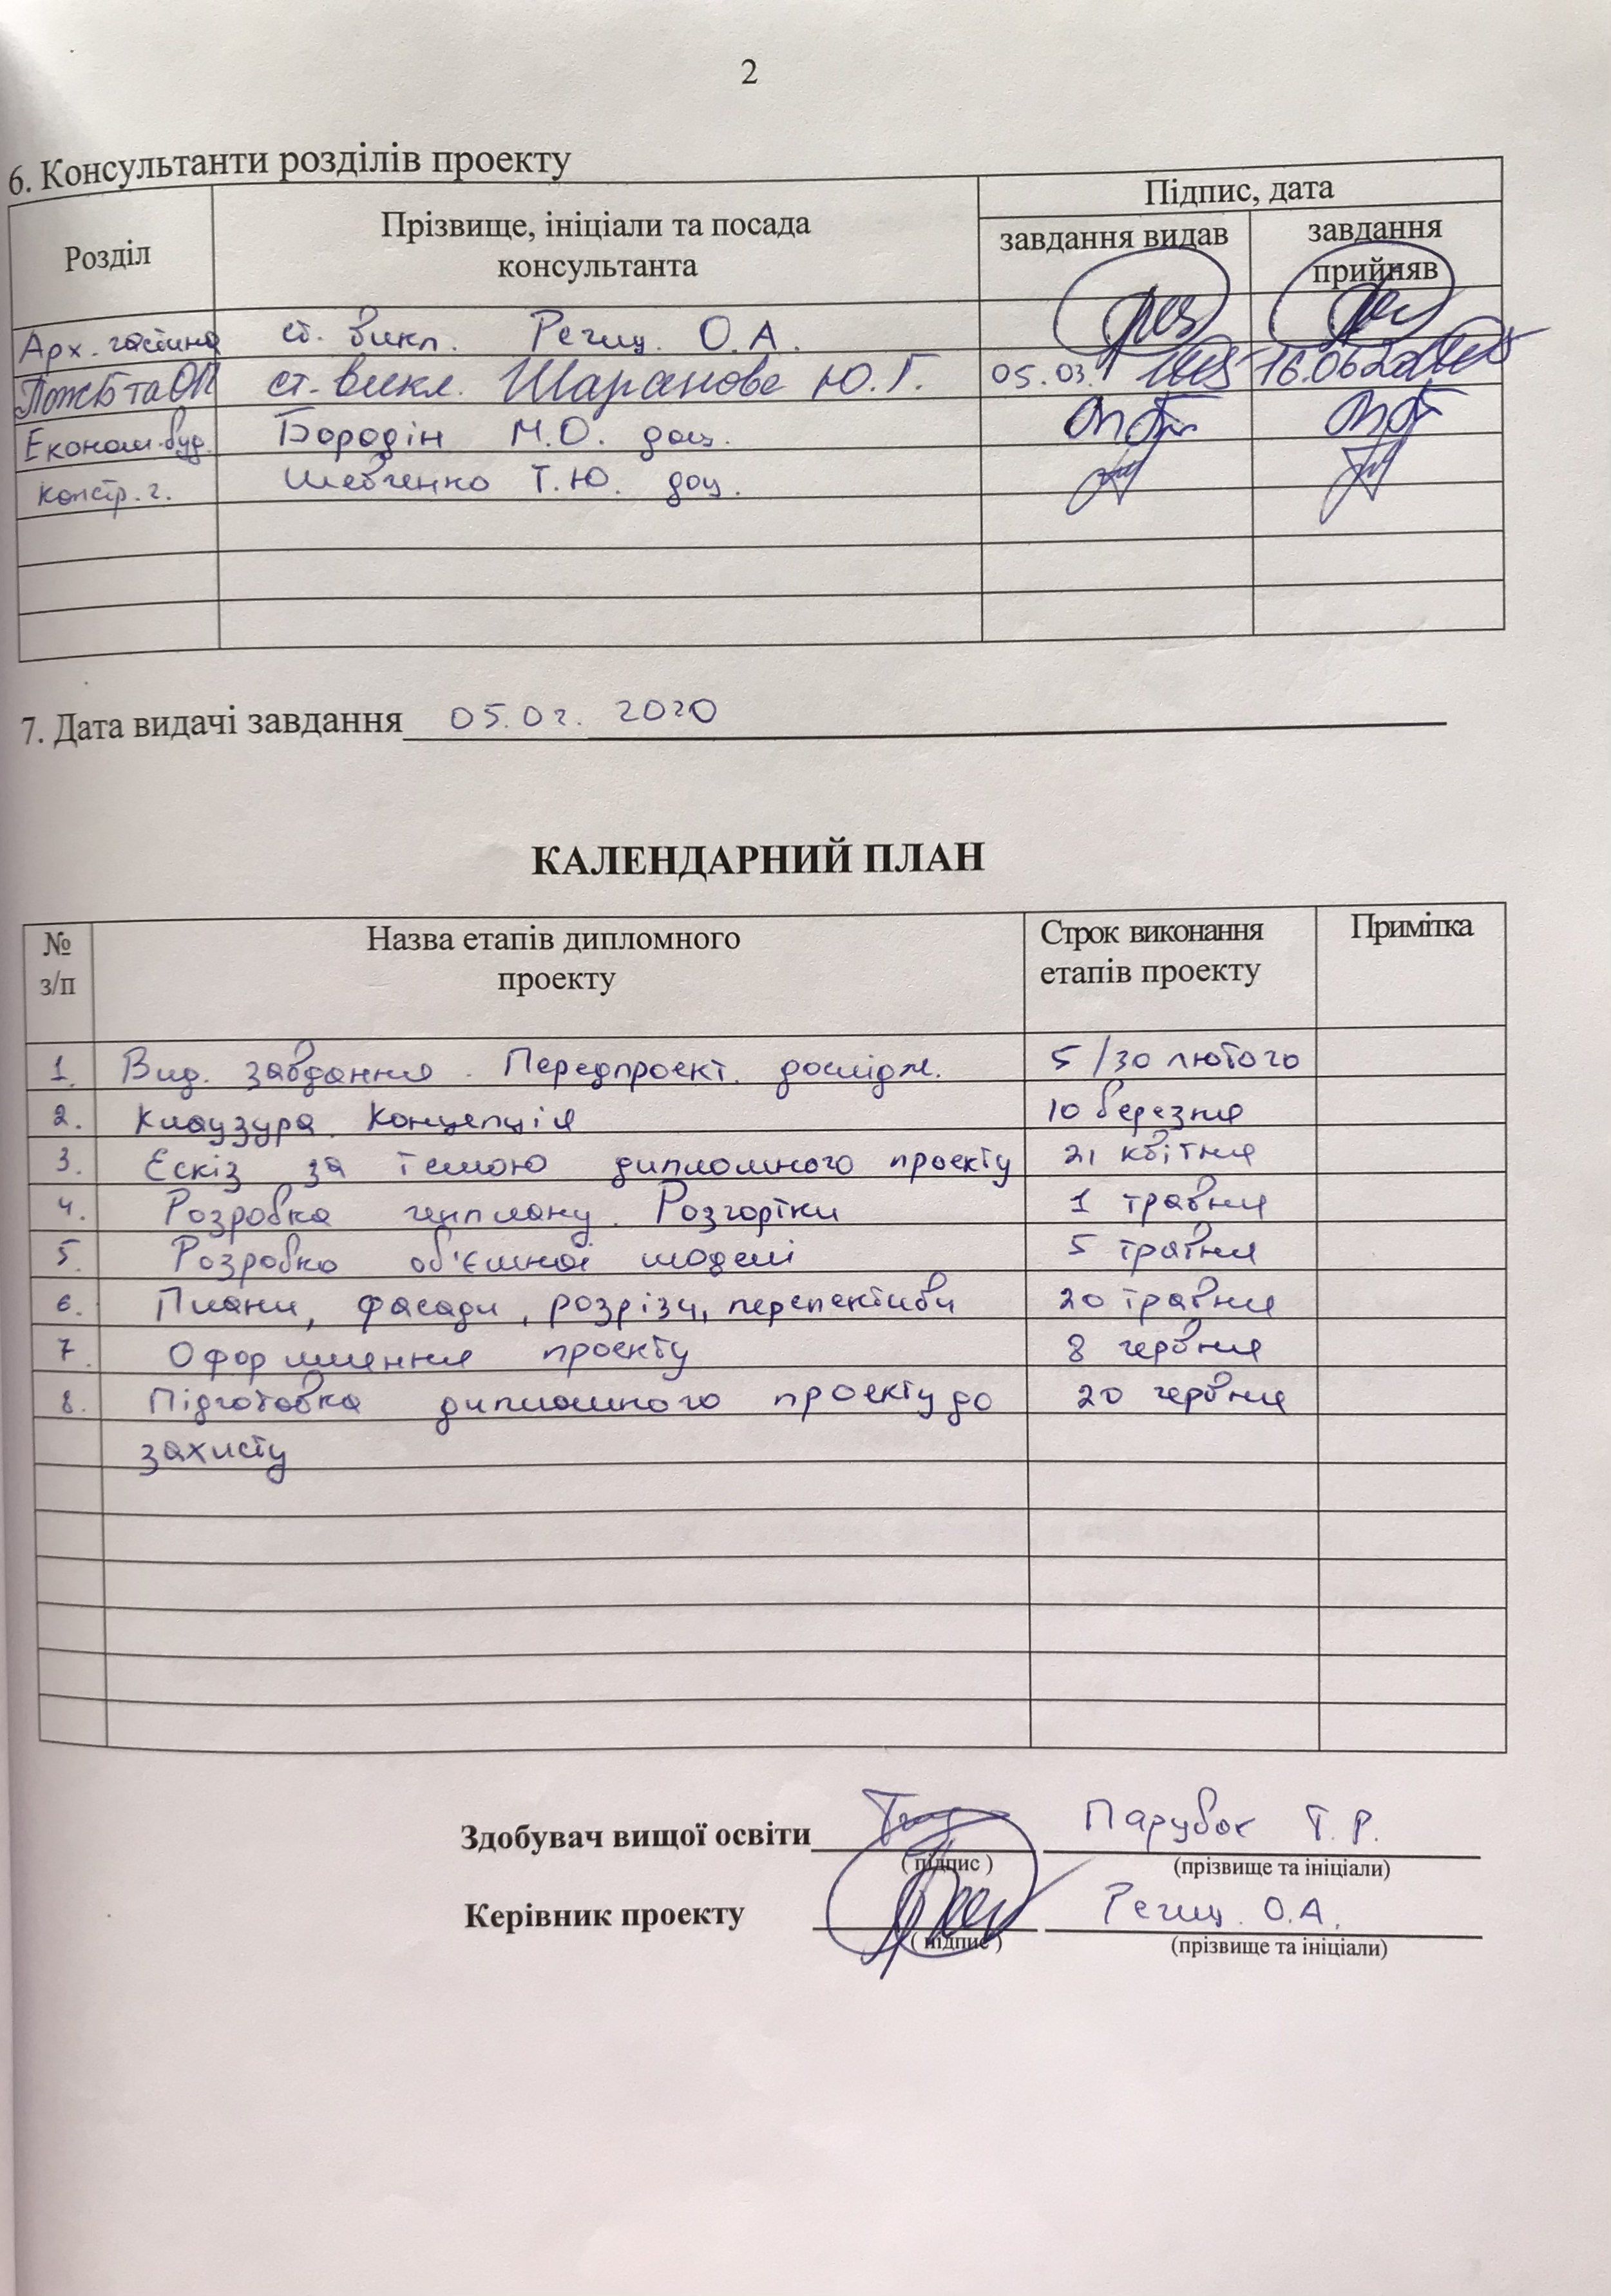 2
6. Консультанти розділів проекту
Розділ
Прізвище, ініціали та посада
консультанта
Підпис, дата
завдання видав
завдання
прийняв
Арх. частина ст. викл. О.А.
ПожБ та ОП ст. викл. Шаранова Ю.Г. 05.03. 16.06.20
Економ. буд. Бородін М.О. доц.
Констр. ч. Шевченко Т.Ю. доц.
7. Дата видачі завдання 05.02. 2020
КАЛЕНДАРНИЙ ПЛАН
№
з/п
Назва етапів дипломного
проекту
Строк виконання
етапів проекту
Примітка
1. Вид. завдання. Передпроект. дослідж. 5 / 30 лютого
2. Клаузура. Концепція 10 березня
3. Ескіз за темою дипломного проекту 21 квітня
4. Розробка генплану. Розгортки 1 травня
5. Розробка об'ємної моделі 5 травня
6. Плани, фасади, розрізи, перспективи 20 травня
7. Оформлення проекту 8 червня
8. Підготовка дипломного проекту до 20 червня
захисту
Здобувач вищої освіти Парубок Т. Р.
( підпис ) (прізвище та ініціали)
Керівник проекту О.А.
( підпис ) (прізвище та ініціали)